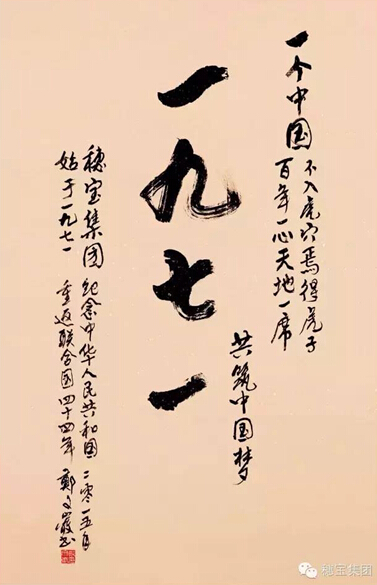 一个中国
不入虎穴焉得虎子
百年一心天地一席
共筑中国梦
一九七一
穗宝集团 纪念中华人民共和国 二零一五年
始于一九七一 重返联合国四十四年 郑文
穗宝集团